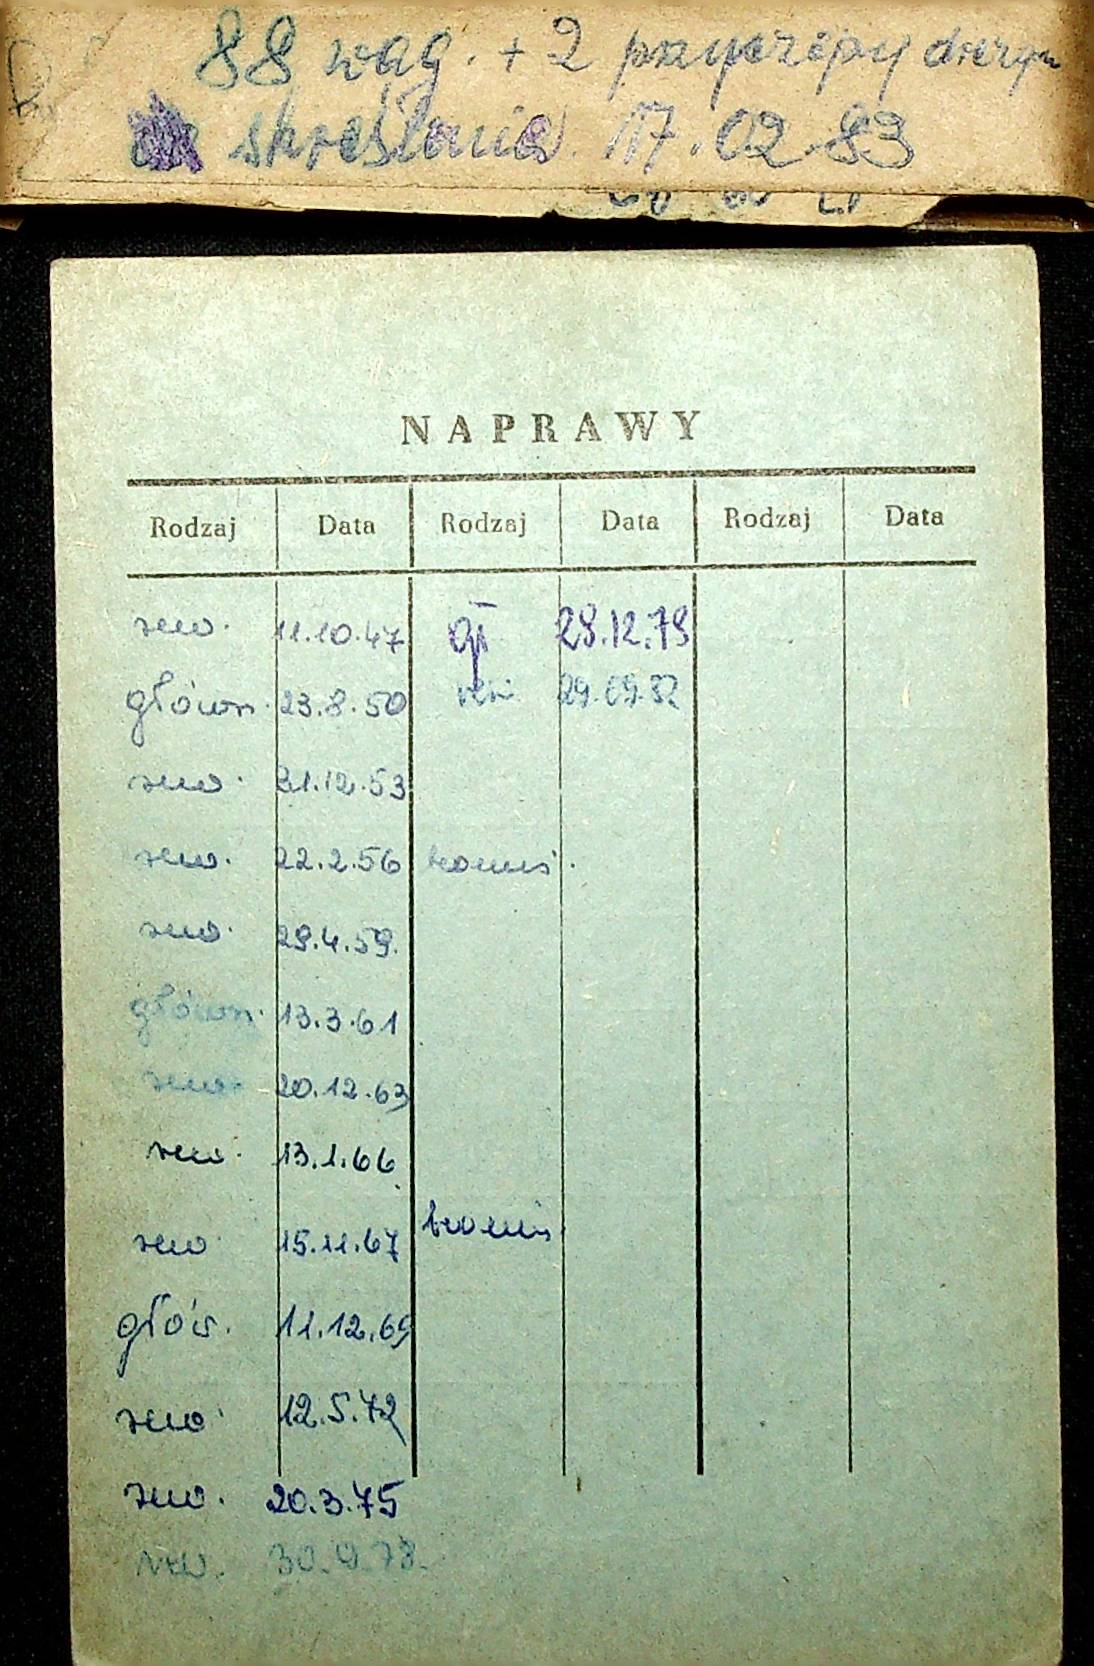 88 wag. + 2 przyczepy
skreślenia 17.02.83
NAPRAWY
Rodzaj Data Rodzaj Data Rodzaj Data
rew. 11.10.47 gł 28.12.79
główn. 23.8.50 rew 29.09.82
rew. 31.12.53
rew. 22.2.56
rew. 29.4.59.
główn. 13.3.61
rew. 20.12.63
rew. 13.1.66
rew 15.11.67
głów. 11.12.69
rew. 12.5.72
rew. 20.3.75
rew. 30.9.78.